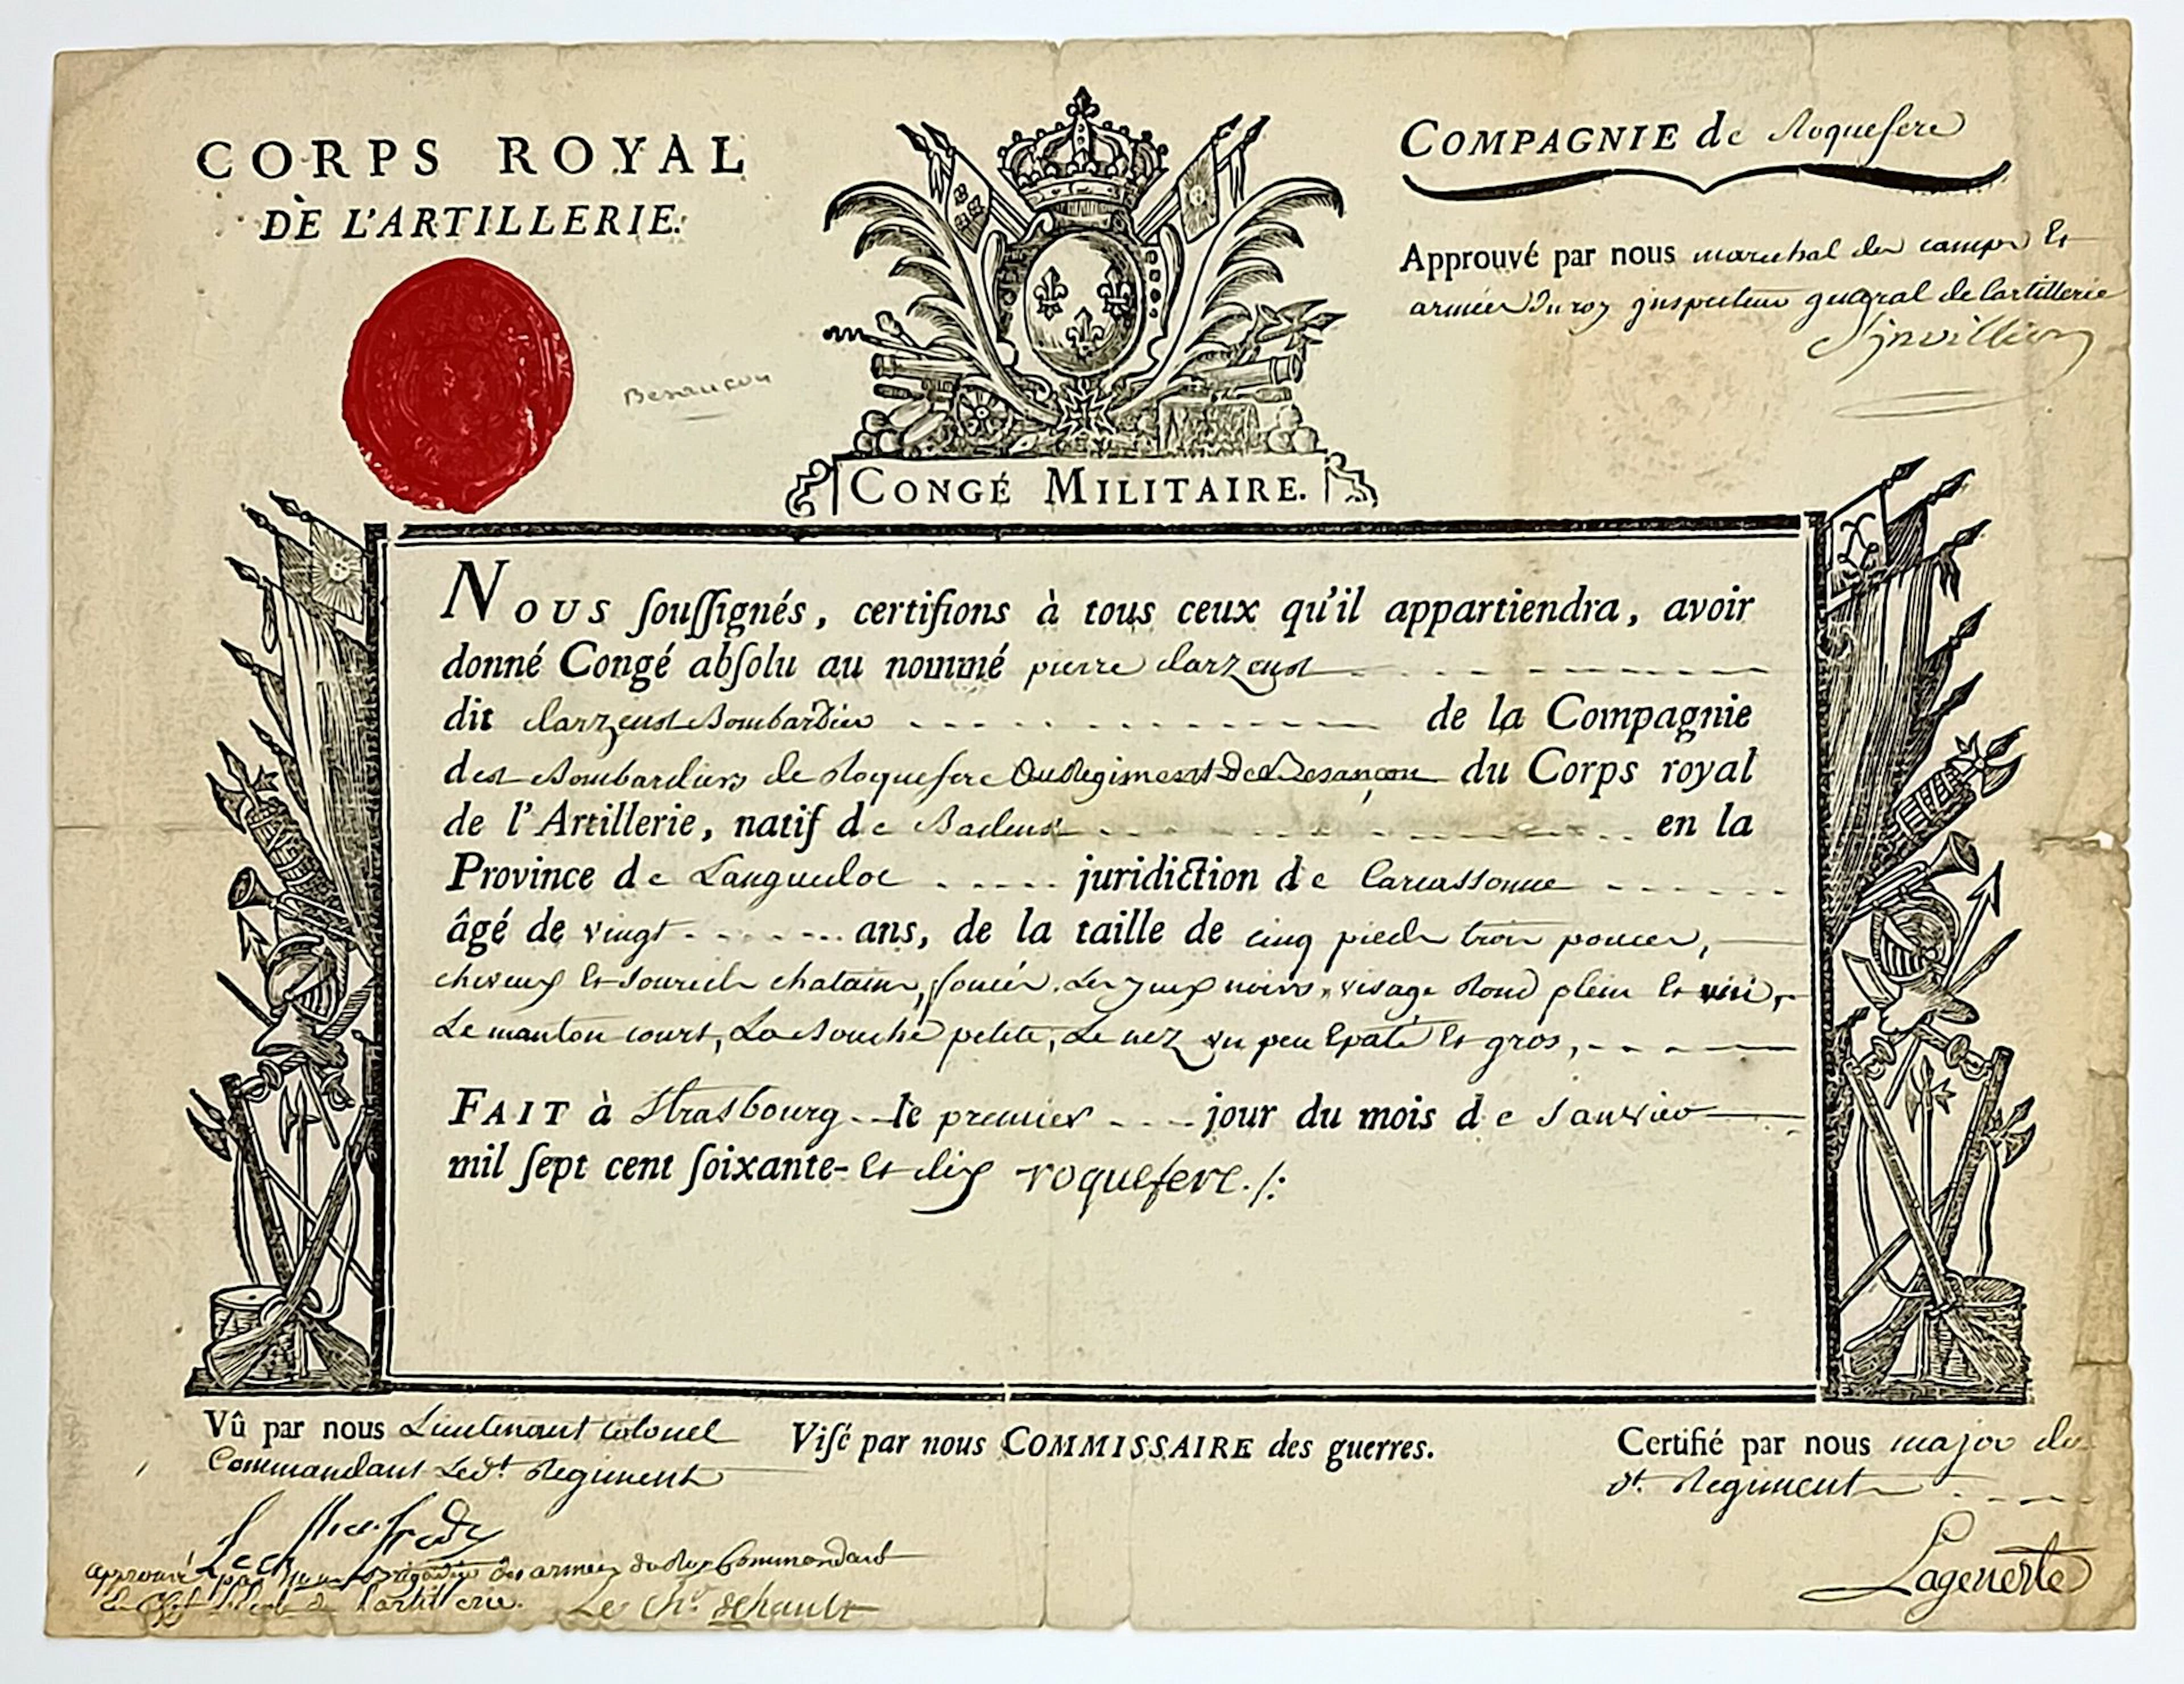 CORPS ROYAL
DE L'ARTILLERIE.
Besançon
COMPAGNIE de Roquefere
Approuvé par nous marechal des camps Et
armées Du roy jnspecteur general de lartillerie
CONGÉ MILITAIRE.
NOUS souſſignés, certifions à tous ceux qu'il appartiendra, avoir
donné Congé abſolu au nommé pierre
dit Bombardier de la Compagnie
des Bombardiers de Roquefere Du Regiment De Besançon du Corps royal
de l'Artillerie, natif de en la
Province de Languedoc juridiction de Carcassonne
âgé de vingt ans, de la taille de cinq pieds trois pouces,
cheveux Et sourcils chatains, foncés, Les yeux noirs, visage Rond plein Et
Le manton court, La Bouche petite, Le nez un peu Epaté Et gros,
FAIT à Strasbourg le premier jour du mois de Janvier
mil ſept cent ſoixante- Et dix roquefere ./:
Vû par nous Lieutenant Colonel
Commandant Ledt. Regiment
approuvé par nous Brigadier des armées du Roy Commandant
L'artillerie. Le Chr.
Viſé par nous COMMISSAIRE des guerres.
Certifié par nous major du
dt. Regiment
Lagenerte